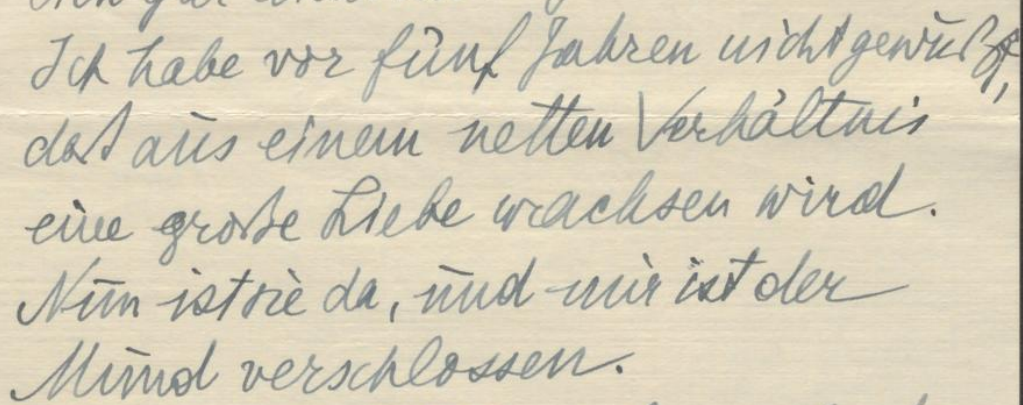 Ich habe vor fünf Jahren nicht gewußt,
daß aus einem netten Verhältnis
eine große Liebe wachsen wird.
Nun ist sie da, und mir ist der
Mund verschlossen.